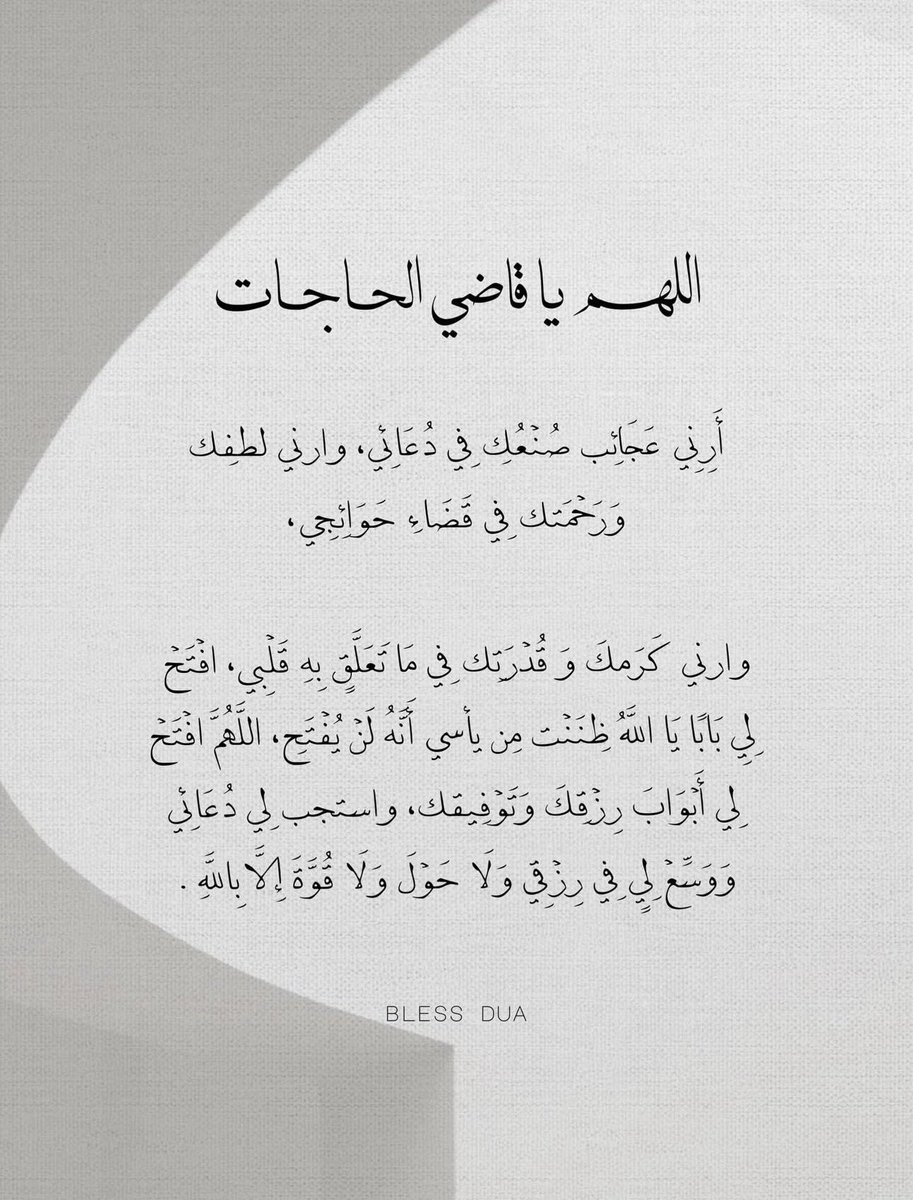 اللهم يا قاضي الحاجات
أَرِنِي عَجَائِب صُنْعُكِ فِي دُعَائِي، وارني لطفِك
وَرَحْمَتك فِي قَضَاءِ حَوَائِجِي،
وارني كَرَمكَ وَ قُدْرَتِك فِي مَا تَعَلَّقٍ بِهِ قَلْبِي، افْتَحْ
لِي بَابًا يَا اللَّهُ ظِنَنْت مِن يأسي أَنَّهُ لَنْ يُفْتَحِ، اللَّهُمَّ افْتَحْ
لِي أَبْوَابَ رِزْقِكَ وَتَوْفِيقك، واستجب لِي دُعَائِي
وَوَسِّعْ لِي فِي رِزْقِي وَلَا حَوْلَ وَلَا قُوَّةَ إِلَّا بِاللَّهِ .
BLESS DUA